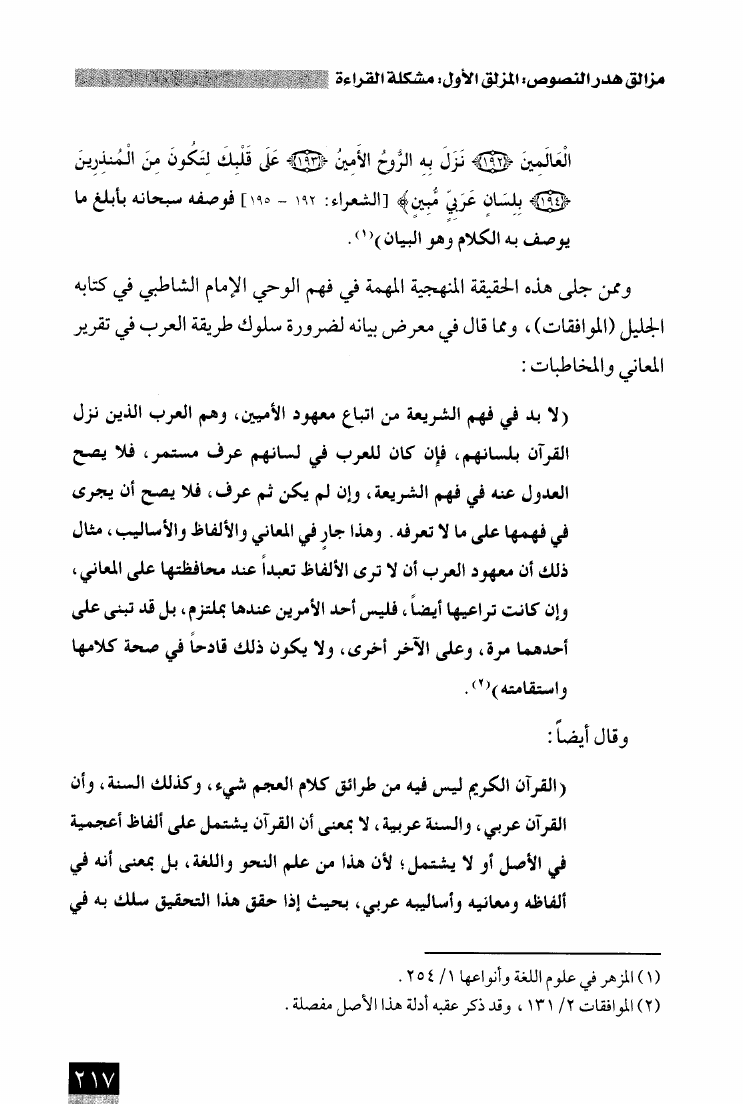 مزالق هدر النصوص: المزلق الأول: مشكلة القراءة
الْعَالَمِينَ ﴿١٩٢﴾ نَزَلَ بِهِ الرُّوحُ الأَمِينُ ﴿١٩٣﴾ عَلَى قَلْبِكَ لِتَكُونَ مِنَ الْمُنذِرِينَ
﴿١٩٤﴾ بِلِسَانٍ عَرَبِيٍّ مُّبِينٍ﴾ [الشعراء: ١٩٢ - ١٩٥] فوصفه سبحانه بأبلغ ما
يوصف به الكلام وهو البيان)(١).
وممن جلى هذه الحقيقة المنهجية المهمة في فهم الوحي الإمام الشاطبي في كتابه
الجليل (الموافقات)، ومما قال في معرض بيانه لضرورة سلوك طريقة العرب في تقرير
المعاني والمخاطبات:
(لا بد في فهم الشريعة من اتباع معهود الأميين، وهم العرب الذين نزل
القرآن بلسانهم، فإن كان للعرب في لسانهم عرف مستمر، فلا يصح
العدول عنه في فهم الشريعة، وإن لم يكن ثم عرف، فلا يصح أن يجرى
في فهمها على ما لا تعرفه. وهذا جارٍ في المعاني والألفاظ والأساليب، مثال
ذلك أن معهود العرب أن لا ترى الألفاظ تعبداً عند محافظتها على المعاني،
وإن كانت تراعيها أيضاً، فليس أحد الأمرين عندها بملتزم، بل قد تبنى على
أحدهما مرة، وعلى الآخر أخرى، ولا يكون ذلك قادحاً في صحة كلامها
واستقامته)(٢).
وقال أيضاً:
(القرآن الكريم ليس فيه من طرائق كلام العجم شيء، وكذلك السنة، وأن
القرآن عربي، والسنة عربية، لا بمعنى أن القرآن يشتمل على ألفاظ أعجمية
في الأصل أو لا يشتمل؛ لأن هذا من علم النحو واللغة، بل بمعنى أنه في
ألفاظه ومعانيه وأساليبه عربي، بحيث إذا حقق هذا التحقيق سلك به في
(١) المزهر في علوم اللغة وأنواعها ١/ ٢٥٤.
(٢) الموافقات ٢/ ١٣١، وقد ذكر عقبه أدلة هذا الأصل مفصلة.
٢١٧